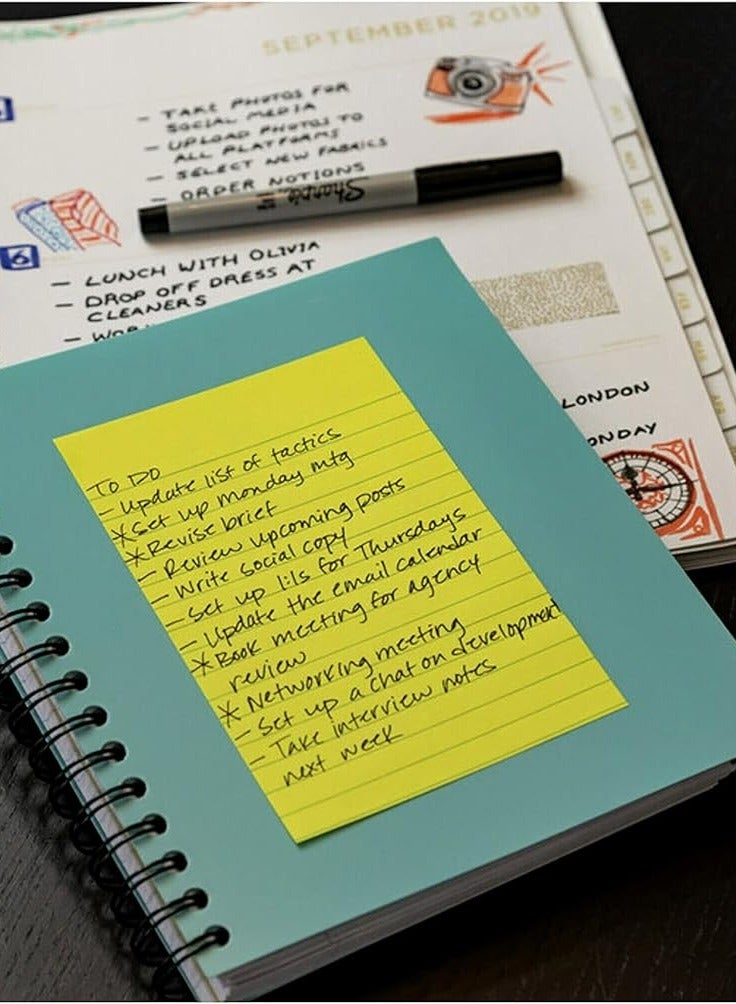 SEPTEMBER 2019
- TAKE PHOTOS FOR
SOCIAL MEDIA
- UPLOAD PHOTOS TO
ALL PLATFORMS
- SELECT NEW FABRICS
- ORDER NOTIONS
Sharpie
6
- LUNCH WITH OLIVIA
- DROP OFF DRESS AT
CLEANERS
LONDON
TO DO
- Update list of tactics
* Set up monday mtg
* Revise brief
- Review upcoming posts
- Write social copy
- Set up 1:1s for Thursdays
- Update the email calendar
* Book meeting for agency
review
* Networking meeting
- Set up a chat on development
- Take interview notes
next week
OCT
NOV
DEC
JAN
FEB
MAR
APR